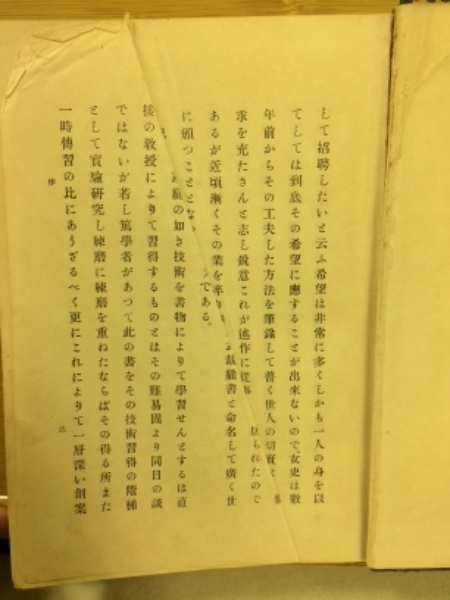 して招聘したいと云ふ希望は非常に多くしかも一人の身を以
てしては到底その希望に應ずることが出来ないので、女史は數
年前からその工夫した方法を筆錄して普く世人の切實
求を充たさんと志し銳意これが述作に從 られたので
あるが近頃漸くその業を卒り 裁縫書と命名して廣く世
に頒つこととな うである。
の如き技術を書物によりて學習せんとするは直
接の敎授によりて習得するものとはその難易固より同日の談
ではないが若し篤學者があつて此の書をその技術習得の階梯
として實驗硏究し練磨に練磨を重ねたならばその得る所また
一時傳習の比にあらざるべく更にこれによりて一層深い創案
序
三